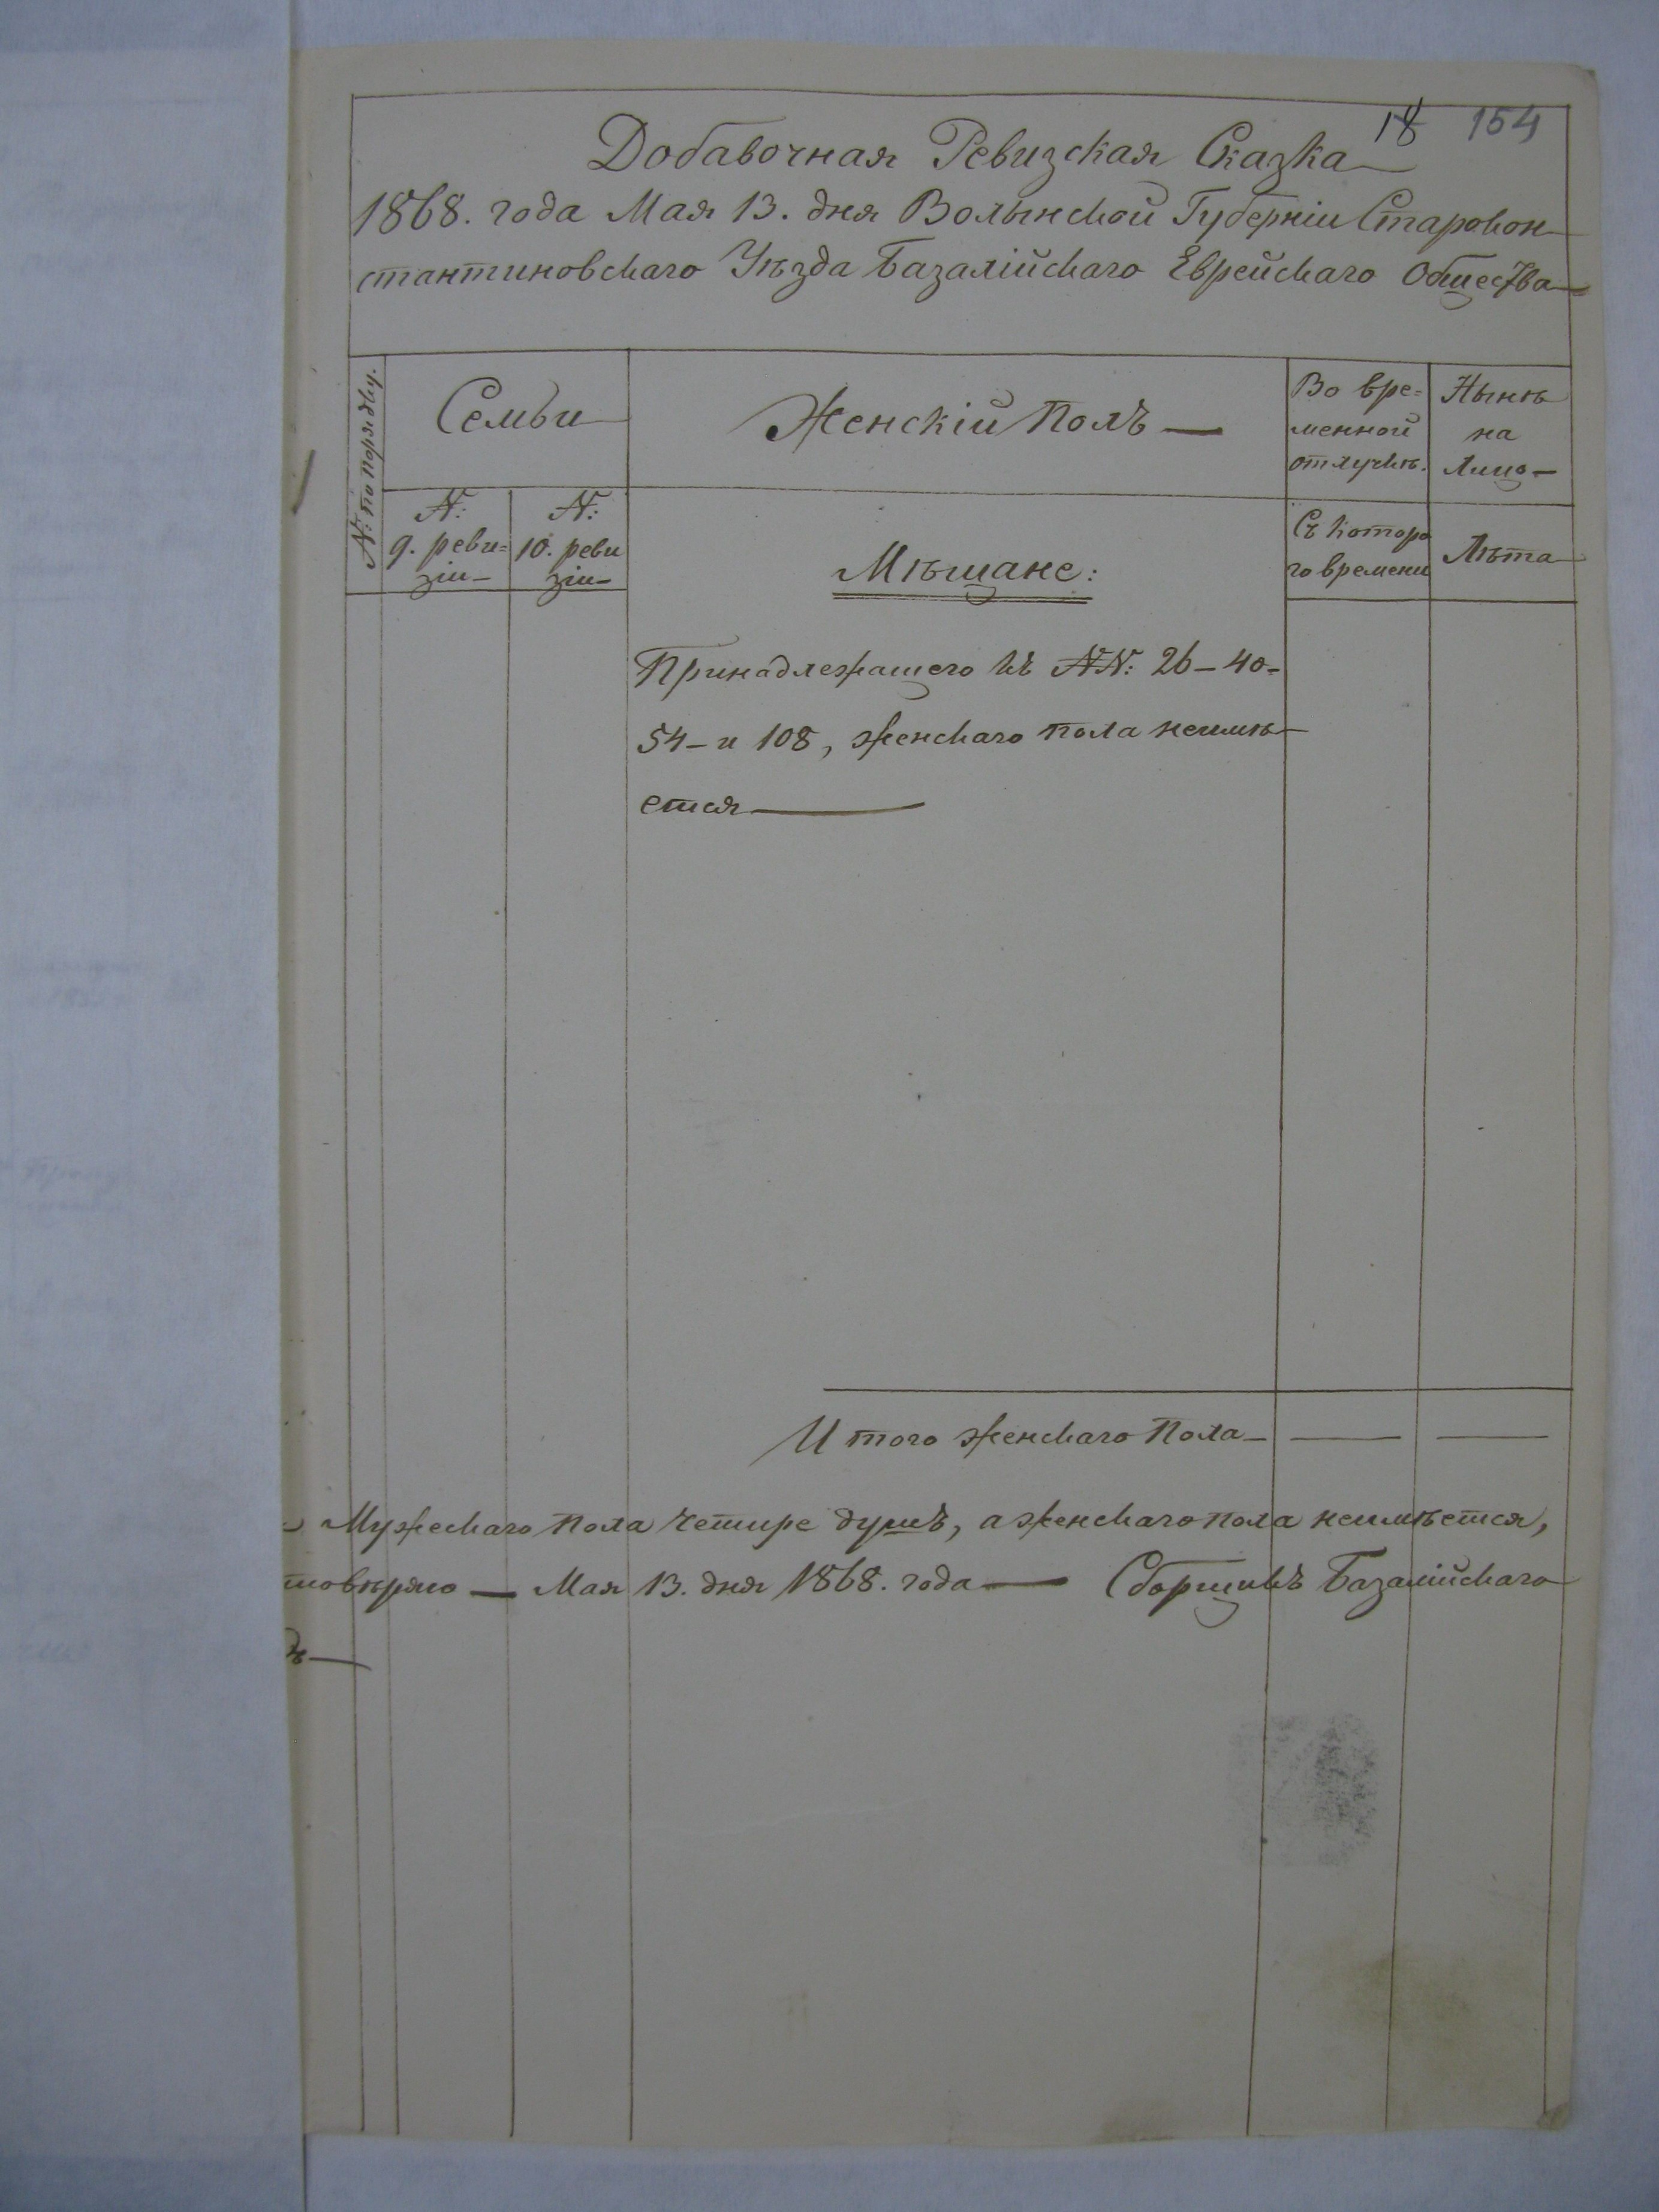 18 154
Добавочная Ревизская Сказка
1868. года Мая 13. дня Волынской Губерніи Старокон
стантиновскаго Уѣзда Базалійскаго Еврейскаго Общества
№: по порядку.
Семьи
Женскій Полъ —
Во вре=
менной
отлучкѣ.
Нынѣ
на
Лицо —
№:
9. реви=
зіи —
№:
10. реви
зіи —
Мѣщане:
Съ которо
го времени
Лѣта
Принадлежащего къ №№: 26 — 40 —
54 — и 108, женскаго пола неимѣ
ется —
Итого женскаго Пола —
Мужескаго пола четире душъ, а женскаго пола неимѣется,
товѣряю — Мая 13. дня 1868. года — Сборщикъ Базалійскаго